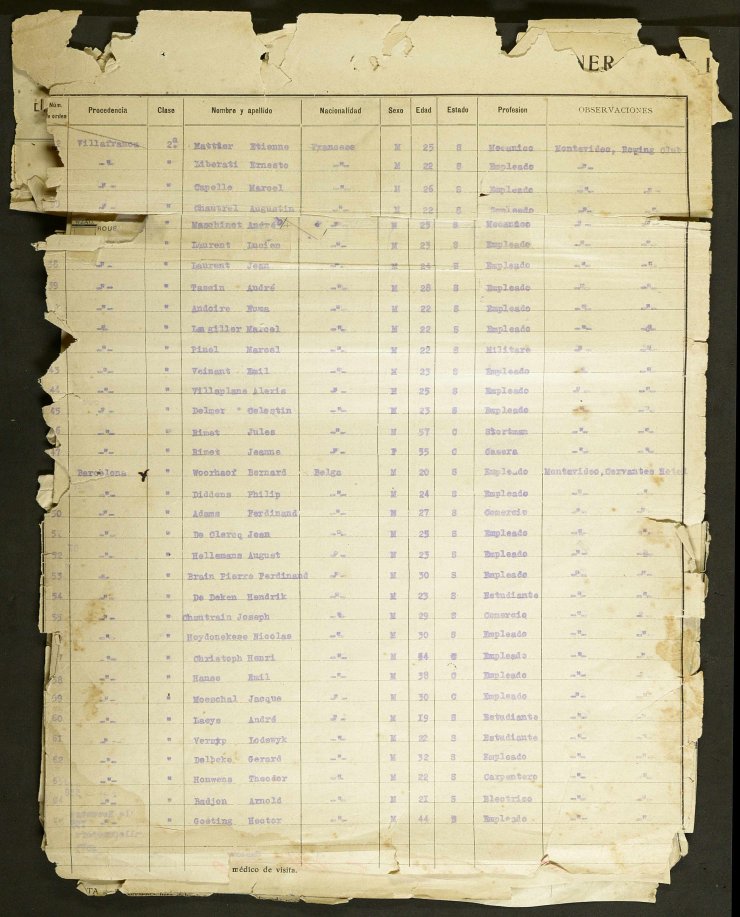 NER
Núm. de orden Procedencia Clase Nombre y apellido Nacionalidad Sexo Edad Estado Profesion OBSERVACIONES
Villafranca 2a Mattler Etienne Francese M 25 S Mecanico Montevideo, Rowing Club
-"- " Liberati Ernesto -"- M 22 S Empleado -"-
-"- " Capelle Marcel -"- M 26 S Empleado -"- -"-
-"- " Chantrel Augustin -"- M 22 S Empleado -"- -"-
" Maschinot André M 25 S Mecanico -"- -"-
" Laurent Lucien -"- M 23 S Empleado -"- -"-
-"- " Laurent Jean -"- M 24 S Empleado -"- -"-
39 -"- " Tassin André -"- M 28 S Empleado -"- -"-
-"- " Andoire Numa -"- M 22 S Empleado -"- -"-
-"- " Langiller Marcel -"- M 22 S Empleado -"- -"-
-"- " Pinel Marcel -"- M 22 S Militare -"- -"-
43 -"- " Veinant Emil -"- M 23 S Empleado -"- -"-
44 -"- " Villaplane Alexis -"- M 25 S Empleado -"- -"-
45 -"- " Delmer Celestin -"- M 23 S Empleado -"- -"-
46 -"- " Rimet Jules -"- M 57 C Skortman -"- -"-
47 -"- " Rimet Jeanne -"- F 55 C Casera -"- -"-
Barcelona " Woorhoof Bernard Belga M 20 S Empleado Montevideo, Cervantes Hotel
-"- " Diddens Philip -"- M 24 S Empleado -"- -"-
50 -"- " Adams Ferdinand -"- M 27 S Comercio -"- -"-
51 -"- " De Clercq Jean -"- M 25 S Empleado -"- -"-
52 -"- " Hellemans August -"- M 23 S Empleado -"- -"-
53 -"- " Brain Pierre Ferdinand -"- M 30 S Empleado -"- -"-
54 -"- " De Deken Hendrik -"- M 23 S Estudiante -"- -"-
55 -"- " Chantrain Joseph -"- M 29 S Comercio -"- -"-
-"- " Hoydonckese Nicolas -"- M 30 S Empleado -"- -"-
-"- " Christoph Henri -"- M 54 C Empleado -"- -"-
58 -"- " Hanse Emil -"- M 38 C Empleado -"- -"-
59 -"- " Moeschal Jacque -"- M 30 C Empleado -"- -"-
60 -"- " Laeys André -"- M 19 S Estudiante -"- -"-
61 -"- " Lodewyk -"- M 22 S Estudiante -"- -"-
62 -"- " Delbeke Gerard -"- M 32 S Empleado -"- -"-
-"- " Nouwens Theodor -"- M 22 S Carpentero -"- -"-
64 -"- " Badjou Arnold -"- M 21 S Electrico -"- -"-
" Goeting Hector -"- M 44 S Empleado -"- -"-
médico de visita.